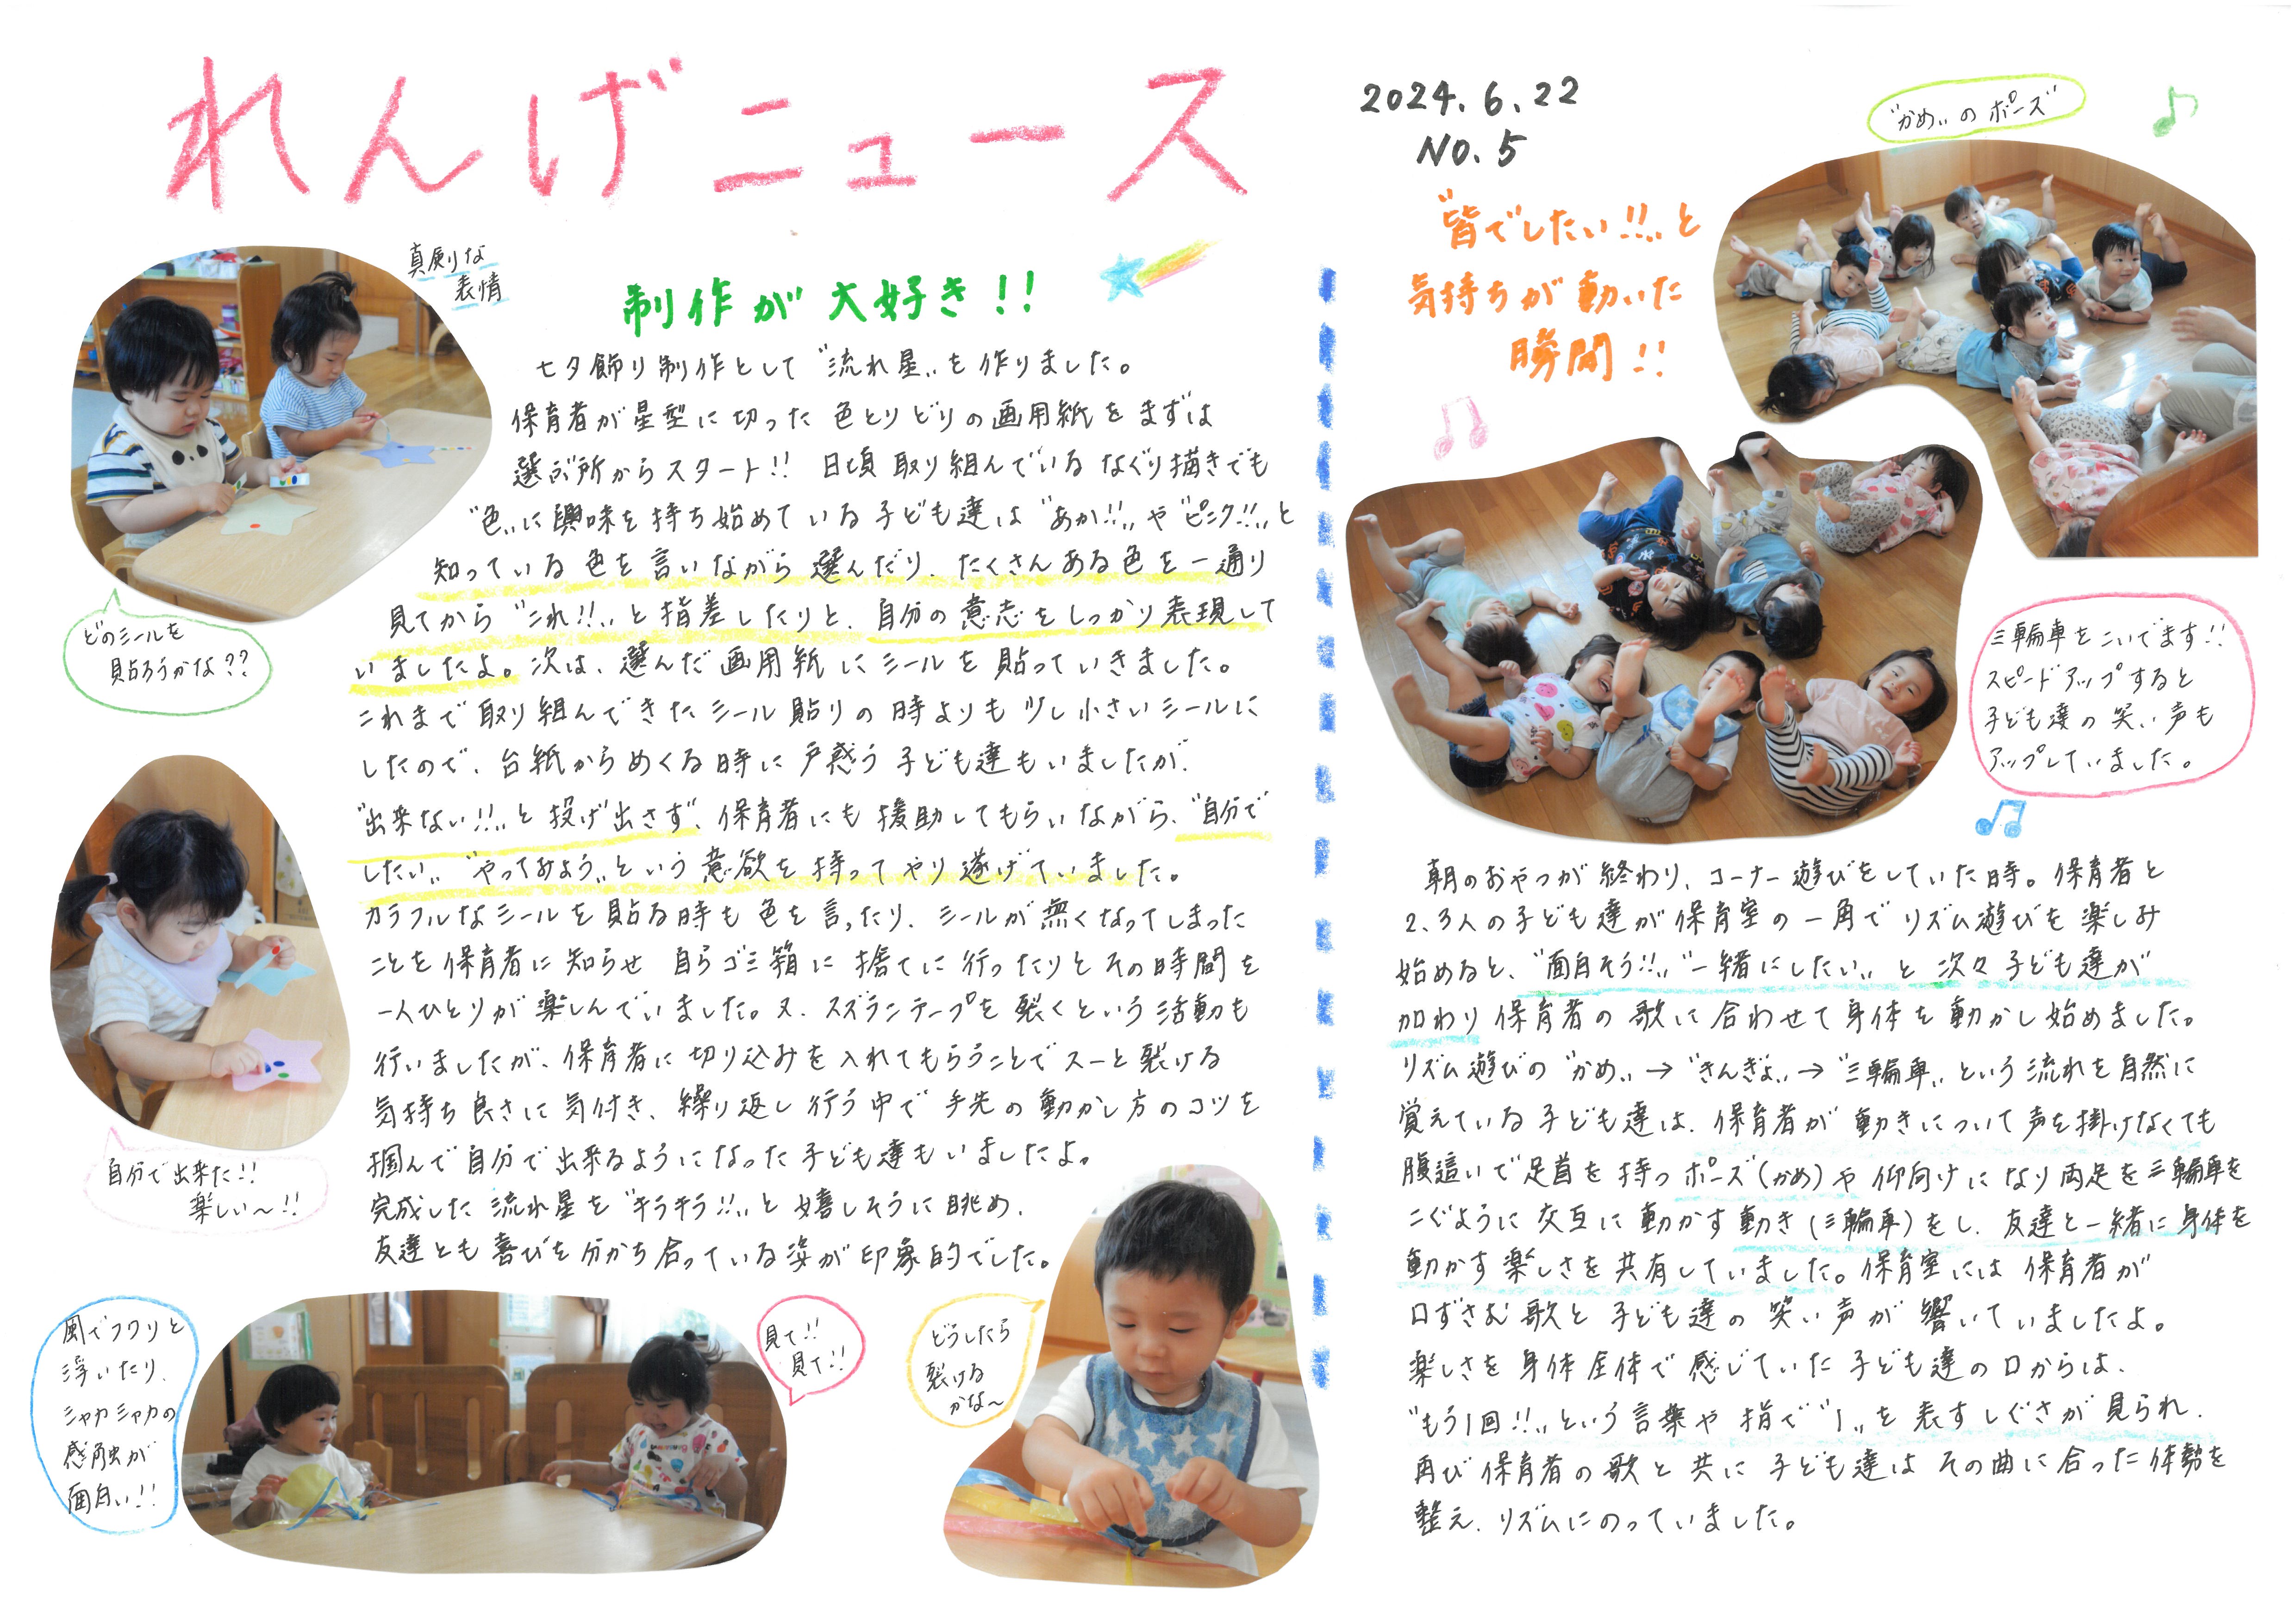 れんげニュース
2024.6.22
NO.5
制作が大好き!!
真剣な
表情
七夕飾り制作として“流れ星„を作りました。
保育者が星型に切った色とりどりの画用紙をまずは
選ぶ所からスタート!! 日頃取り組んでいるなぐり描きでも
“色„に興味を持ち始めている子ども達は“あか!!„や“ピンク!!„と
知っている色を言いながら選んだり、たくさんある色を一通り
見てから“これ!!„と指差したりと、自分の意志をしっかり表現して
いましたよ。次は、選んだ画用紙にシールを貼っていきました。
これまで取り組んできたシール貼りの時よりも少し小さいシールに
したので、台紙からめくる時に戸惑う子ども達もいましたが、
“出来ない!!„と投げ出さず、保育者にも援助してもらいながら、“自分で
したい„“やってみよう„という意欲を持ってやり遂げていました。
カラフルなシールを貼る時も色を言ったり、シールが無くなってしまった
ことを保育者に知らせ自らゴミ箱に捨てに行ったりとその時間を
一人ひとりが楽しんでいました。又、スズランテープを裂くという活動も
行いましたが、保育者に切り込みを入れてもらうことでスーと裂ける
気持ち良さに気付き、繰り返し行う中で手先の動かし方のコツを
掴んで自分で出来るようになった子ども達もいましたよ。
完成した流れ星を“キラキラ!!„と嬉しそうに眺め、
友達とも喜びを分かち合っている姿が印象的でした。
どのシールを
貼ろうかな??
自分で出来た!!
楽しい〜!!
風でフワリと
浮いたり、
シャカシャカの
感触が
面白い!!
見て!!
見て!!
どうしたら
裂ける
かな〜
“皆でしたい!!„と
気持ちが動いた
瞬間!!
“かめ„のポーズ
三輪車をこいでます!!
スピードアップすると
子ども達の笑い声も
アップしていました。
朝のおやつが終わり、コーナー遊びをしていた時。保育者と
2、3人の子ども達が保育室の一角でリズム遊びを楽しみ
始めると、“面白そう!!„“一緒にしたい„と次々子ども達が
加わり保育者の歌に合わせて身体を動かし始めました。
リズム遊びの“かめ„→“きんぎょ„→“三輪車„という流れを自然に
覚えている子ども達は、保育者が動きについて声を掛けなくても
腹這いで足首を持つポーズ(かめ)や仰向けになり両足を三輪車を
こぐように交互に動かす動き(三輪車)をし、友達と一緒に身体を
動かす楽しさを共有していました。保育室には保育者が
口ずさむ歌と子ども達の笑い声が響いていましたよ。
楽しさを身体全体で感じていた子ども達の口からは、
“もう1回!!„という言葉や指で“1„を表すしぐさが見られ、
再び保育者の歌と共に子ども達はその曲に合った体勢を
整え、リズムにのっていました。